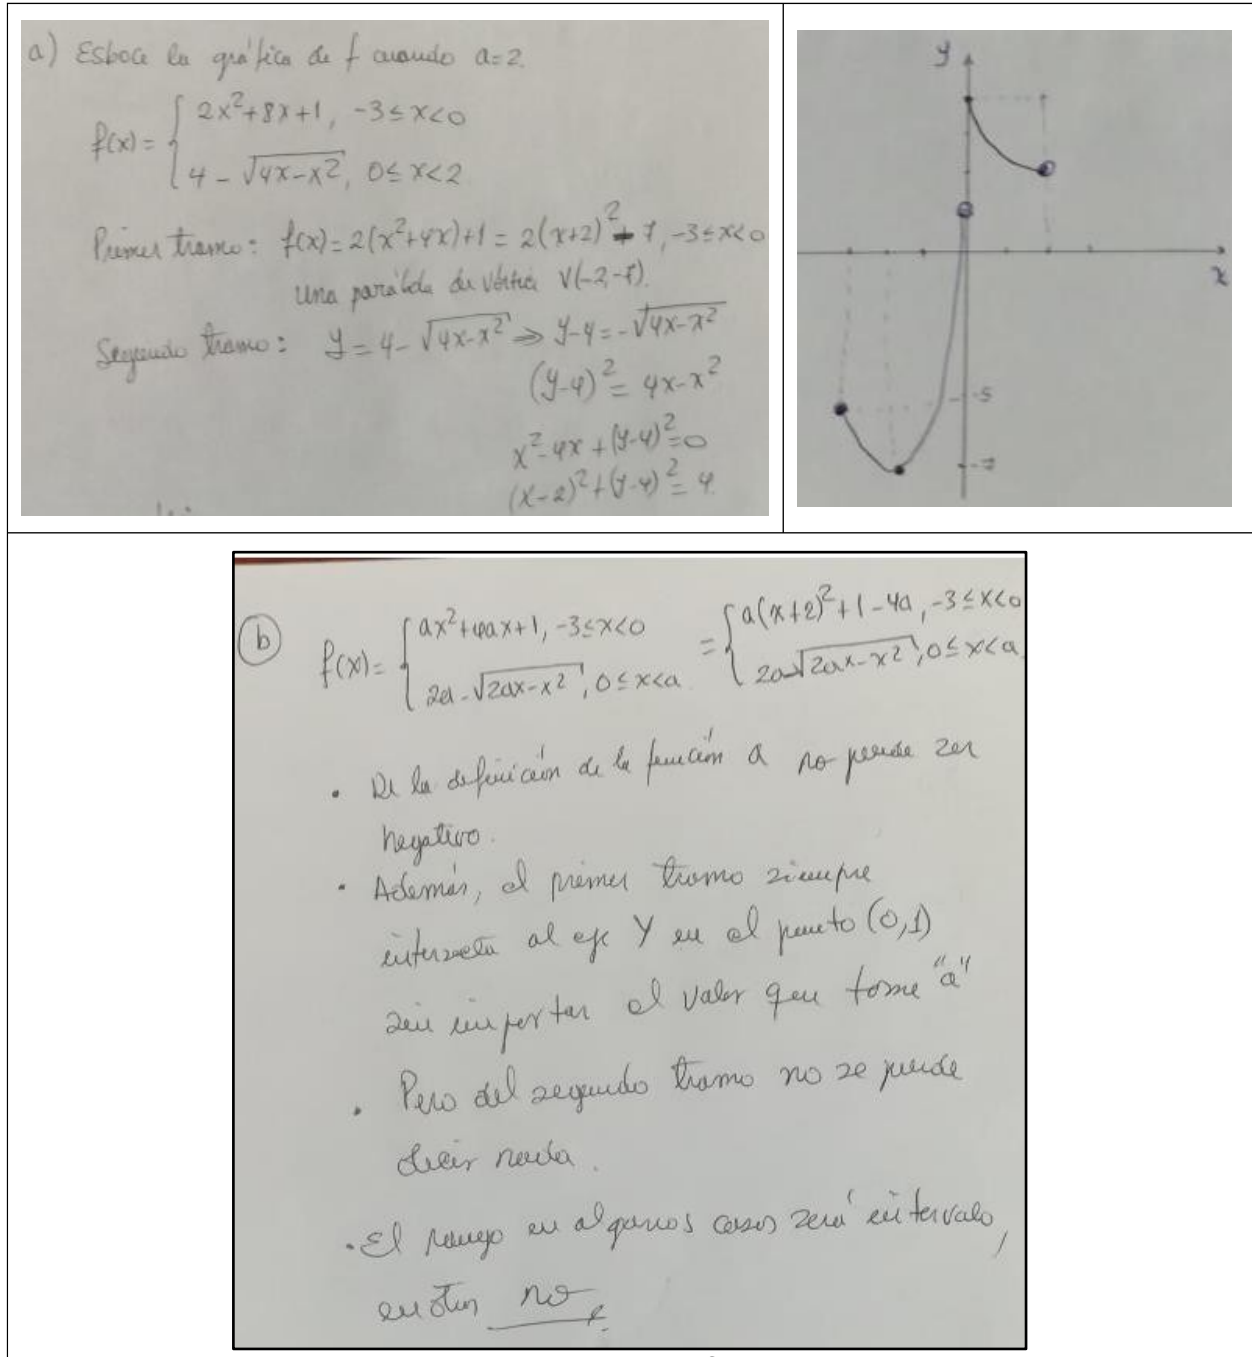 a) Esboce la gráfica de f cuando a=2.
f(x) = { 2x²+8x+1, -3≤x<0
4-√(4x-x²), 0≤x<2
Primer tramo: f(x)=2(x²+4x)+1=2(x+2)²-7, -3≤x<0
Una parábola de vértice V(-2,-7).
Segundo tramo: y=4-√(4x-x²) ⇒ y-4=-√(4x-x²)
(y-4)²=4x-x²
x²-4x+(y-4)²=0
(x-2)²+(y-4)²=4
y
x
-5
-7
b
f(x)= { ax²+4ax+1, -3≤x<0 = { a(x+2)²+1-4a, -3≤x<0
2a-√(2ax-x²), 0≤x<a. 2a-√(2ax-x²), 0≤x<a
• De la definición de la función a no puede ser
negativo.
• Además, el primer tramo siempre
intersecta al eje Y en el punto (0,1)
sin importar el valor que tome "a"
• Pero del segundo tramo no se puede
decir nada.
• El rango en algunos casos será intervalo,
en otros no